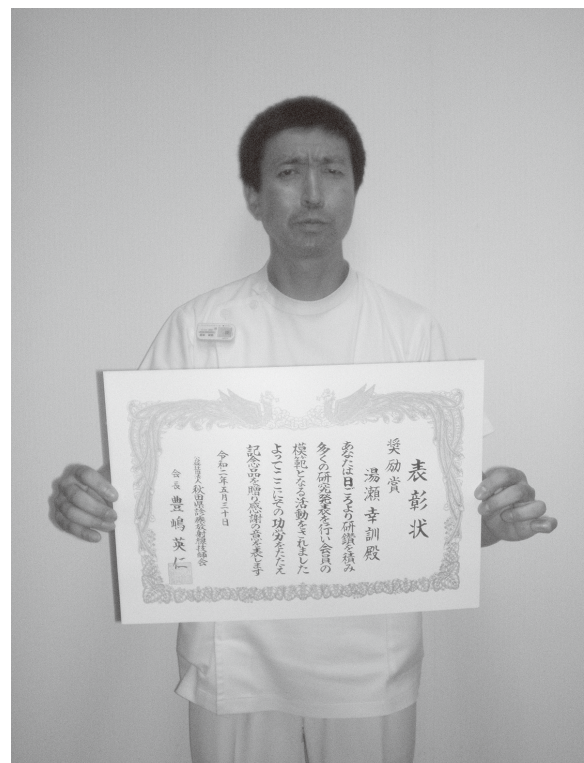 表彰状
奨励賞
湯瀬幸訓殿
あなたは日ごろより研鑽を積み
多くの研究発表を行い会員の
模範となる活動をされました
よってここにその功労をたたえ
記念品を贈り感謝の意を表します
令和二年五月三十日
公益社団法人秋田県診療放射線技師会
会長 豊嶋英仁